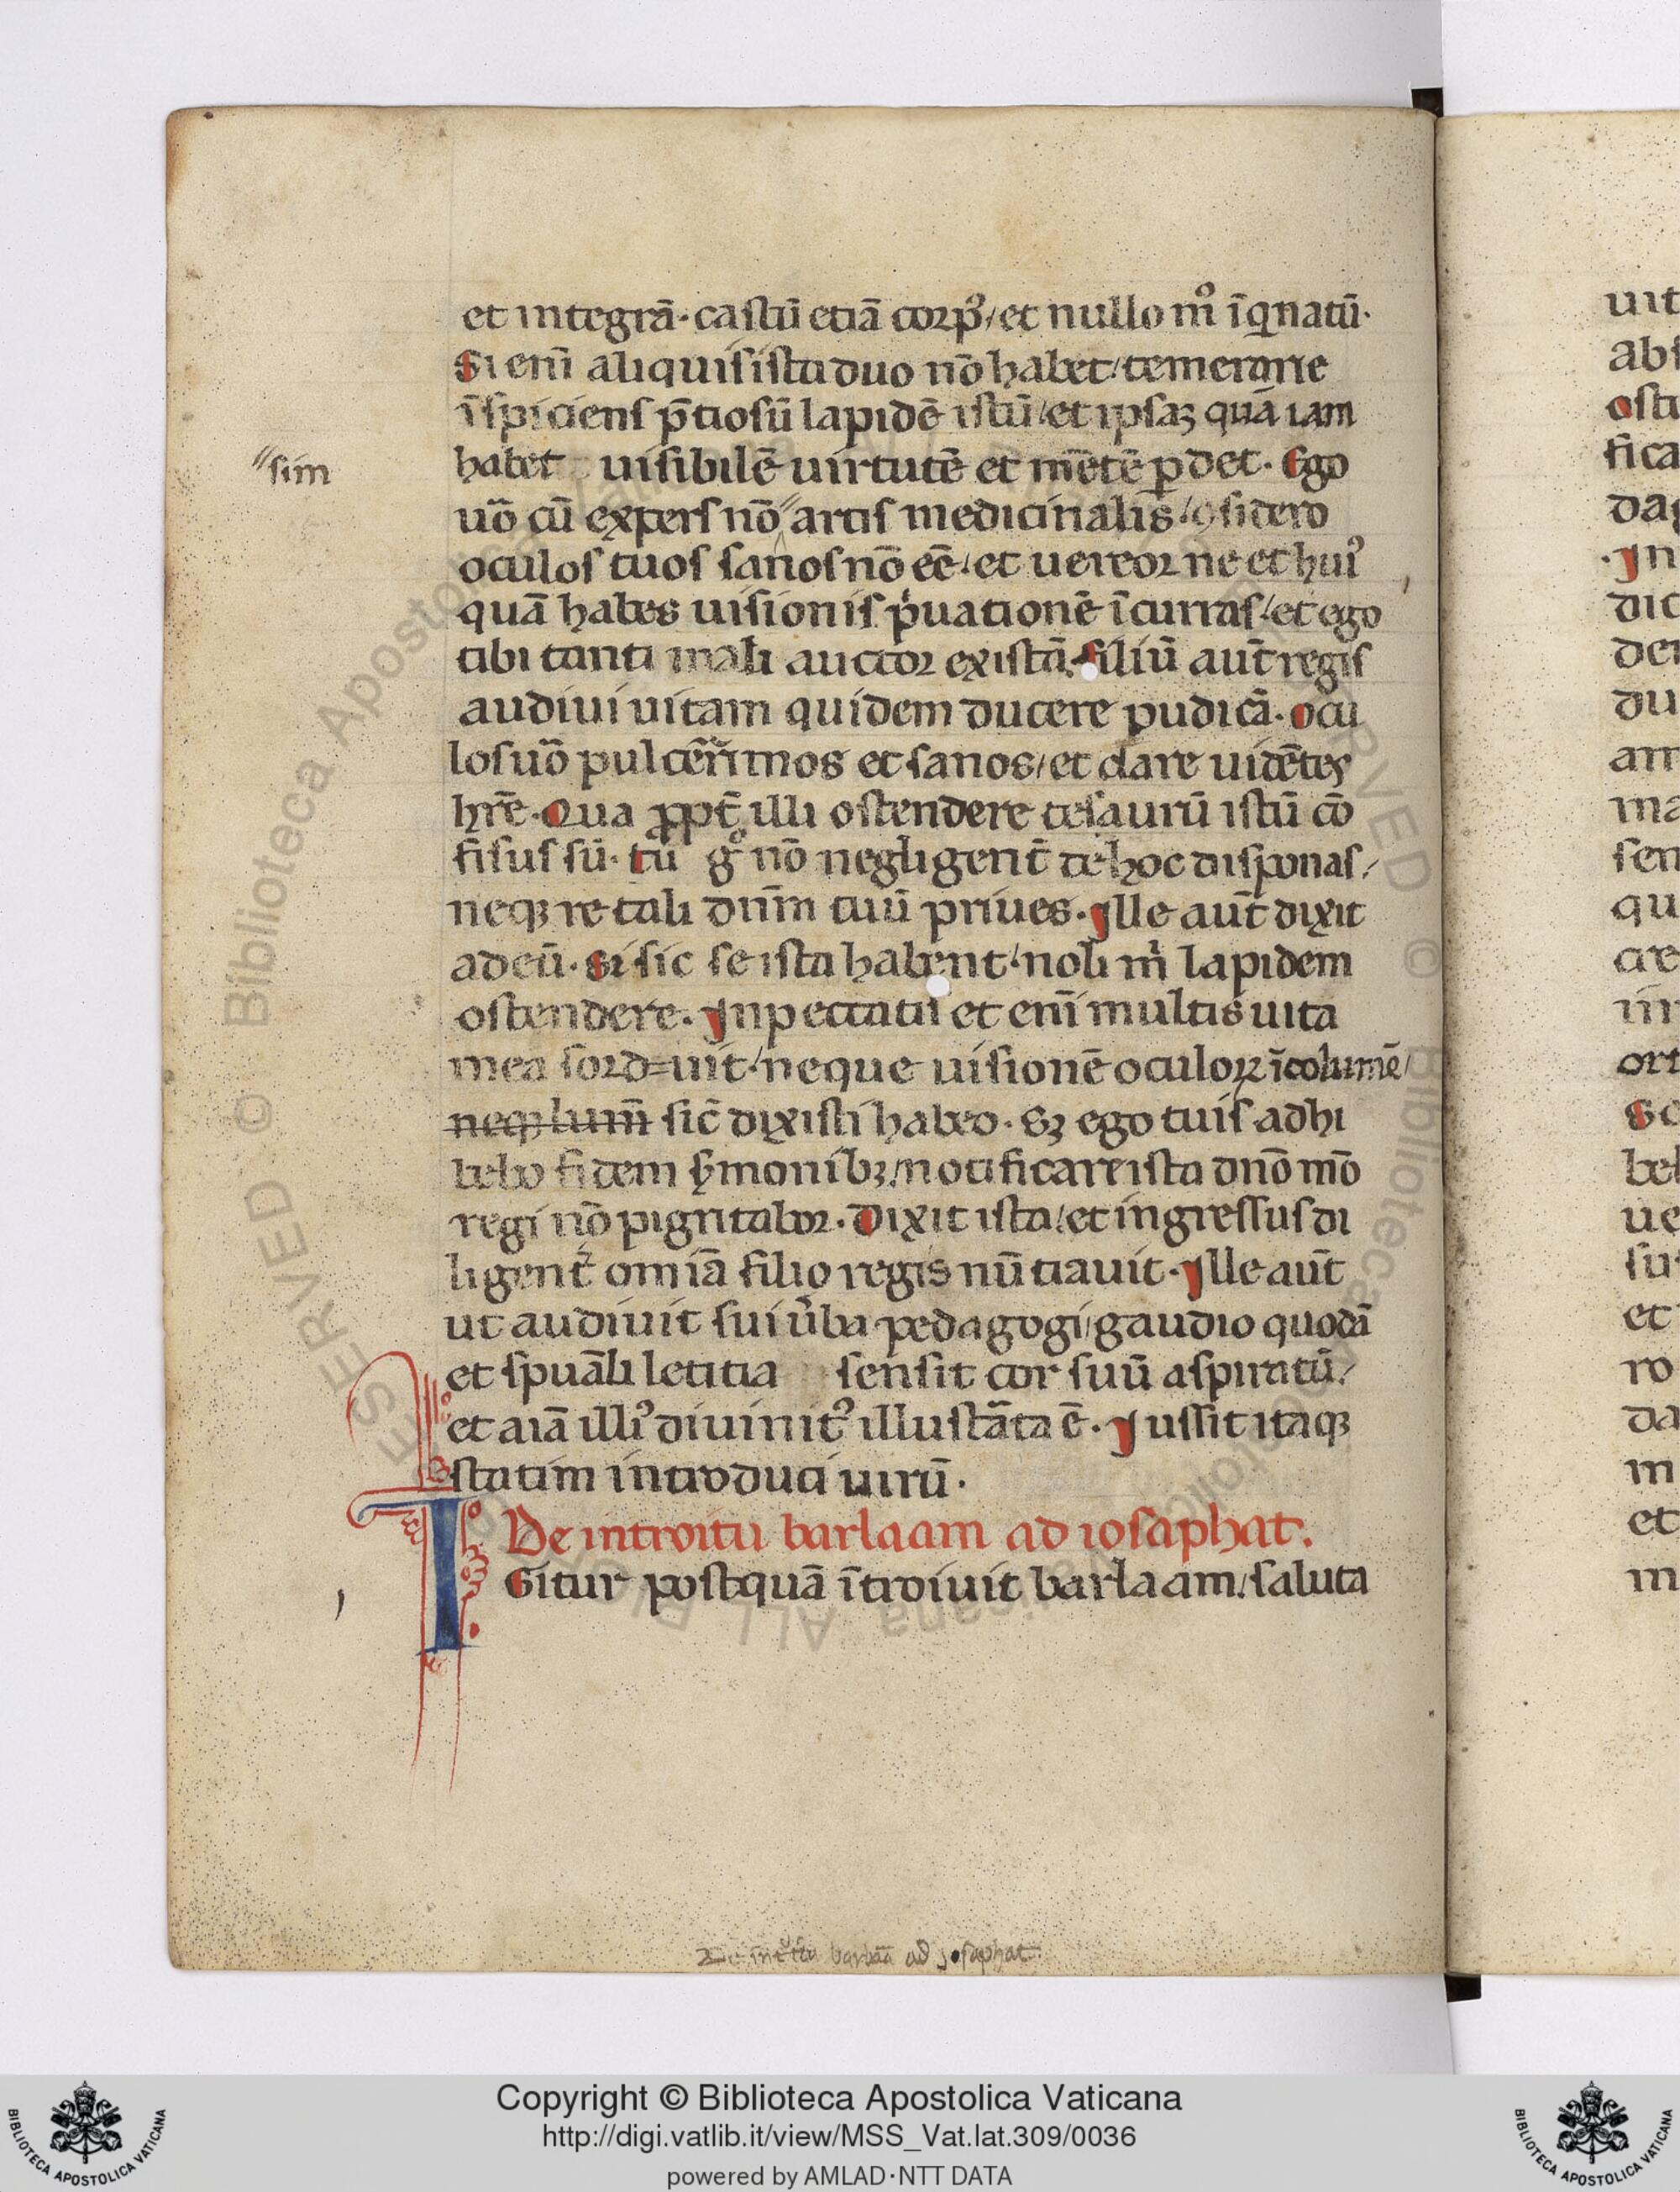 et integrā· castū etiā corpꝰ/ et nullo mͦ īqͥnatū·
Si enī aliquis ista duo nō habet/ temerarie
īspiciens p̄tiosū lapidē istū/ et ipsaꝫ quā iam
habet uisibilē uirtutē et mētē ꝑdet· Ego
"sim
uō cū expers nō" artis medicinalis/ ꝯsidero
oculos tuos sanos nō eē/ et uereor ne et huiꝰ
quā habes uisionis pͥuationē īcurras/ et ego
tibi tanti mali auctor existā. Filiū aut̄ regis
audiui uitam quidem ducere pudicā· Ocu
los uō pulcerimos et sanos/ et clare uidētes
hr̄e· Qua ꝓpt̄ illi ostendere tesaurū istū cō
fisus sū· tu gͦ nō negligent̄ de hoc disponas/
neqꝫ re tali dn̄m tuū priues· Ille aut̄ dixit
ad eū· Si sic se ista habent/ noli mͥ lapidem
ostendere. In peccatis et enī multis uita
mea sorduit/ neque uisionē oculoꝝ īcolumē/
neqꝫ lum̄ sic̄ dixisti habeo· Sꝫ ego tuis adhi
bebo fidem s̄monibꝫ/ notificare ista dn̄o mō
regi nō pigritabor· Dixit ista/ et ingressus di
ligent̄ omīa filio regis nūtiauit· Ille aut̄
ut audiuit sui ūba pedagogi/ gaudio quodā
et spuāli letitia sensit cor suū aspiratū/
et aīā illiꝰ diuinitꝰ illustāta ē· Iussit itaqꝫ
statim introduci uirū·
De introitu barlaam ad iosaphat.
IGitur postquā ītroiuit barlaam/ saluta
De introitu barlaā ad Josaphat
uit
abs
osti
fica
da
·In
dic
de
du
am
ma
sen
qu
cre
im
ort
So
be
ue
su
et
ro
da
m
et
m
Copyright © Biblioteca Apostolica Vaticana
http://digi.vatlib.it/view/MSS_Vat.lat.309/0036
powered by AMLAD·NTT DATA
BIBLIOTECA APOSTOLICA VATICANA
BIBLIOTECA APOSTOLICA VATICANA